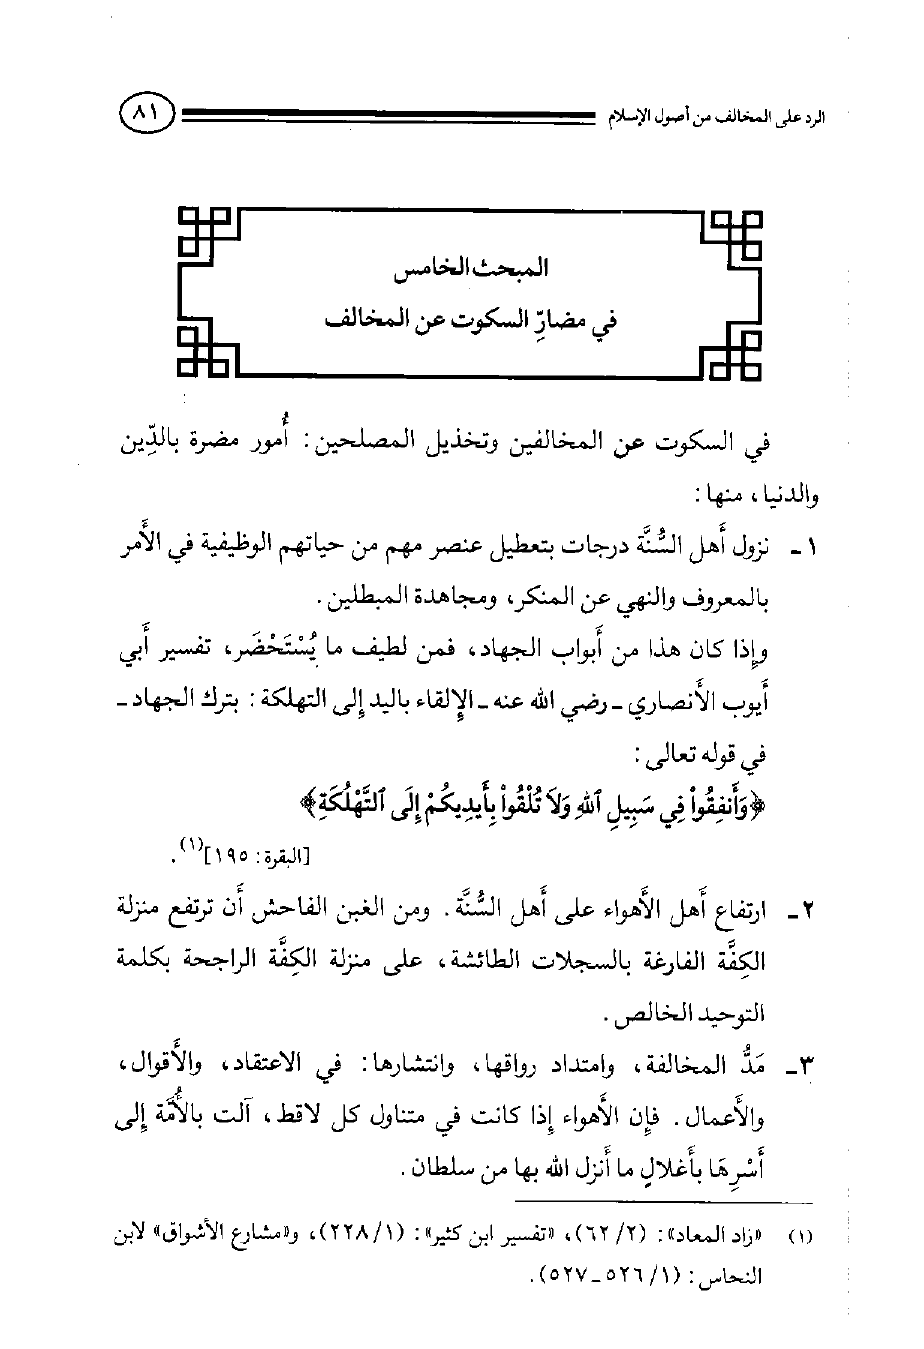 الرد على المخالف من أصول الإسلام
٨١
المبحث الخامس
في مضارِّ السكوت عن المخالف
في السكوت عن المخالفين وتخذيل المصلحين: أُمور مضرة بالدِّين
والدنيا، منها:
١ - نزول أَهل السُّنَّة درجات بتعطيل عنصر مهم من حياتهم الوظيفية في الأَمر
بالمعروف والنهي عن المنكر، ومجاهدة المبطلين.
وإِذا كان هذا من أَبواب الجهاد، فمن لطيف ما يُسْتَحْضَر، تفسير أَبي
أَيوب الأَنصاري - رضي الله عنه - الإِلقاء باليد إِلى التهلكة: بترك الجهاد -
في قوله تعالى:
﴿وَأَنفِقُواْ فِي سَبِيلِ ٱللهِ وَلاَ تُلْقُواْ بِأَيدِيكُمْ إِلَى ٱلتَّهْلُكَةِ﴾
[البقرة: ١٩٥](١).
٢ - ارتفاع أَهل الأَهواء على أَهل السُّنَّة. ومن الغبن الفاحش أَن ترتفع منزلة
الكِفَّة الفارغة بالسجلات الطائشة، على منزلة الكِفَّة الراجحة بكلمة
التوحيد الخالص.
٣ - مَدُّ المخالفة، وامتداد رواقها، وانتشارها: في الاعتقاد، والأَقوال،
والأَعمال. فإِن الأَهواء إِذا كانت في متناول كل لاقط، آلت بالأُمَّة إِلى
أَسْرِهَا بأَغلالٍ ما أَنزل الله بها من سلطان.
(١) «زاد المعاد»: (٢/ ٦٢)، «تفسير ابن كثير»: (١/ ٢٢٨)، و«مشارع الأشواق» لابن
النحاس: (١/ ٥٢٦ - ٥٢٧).